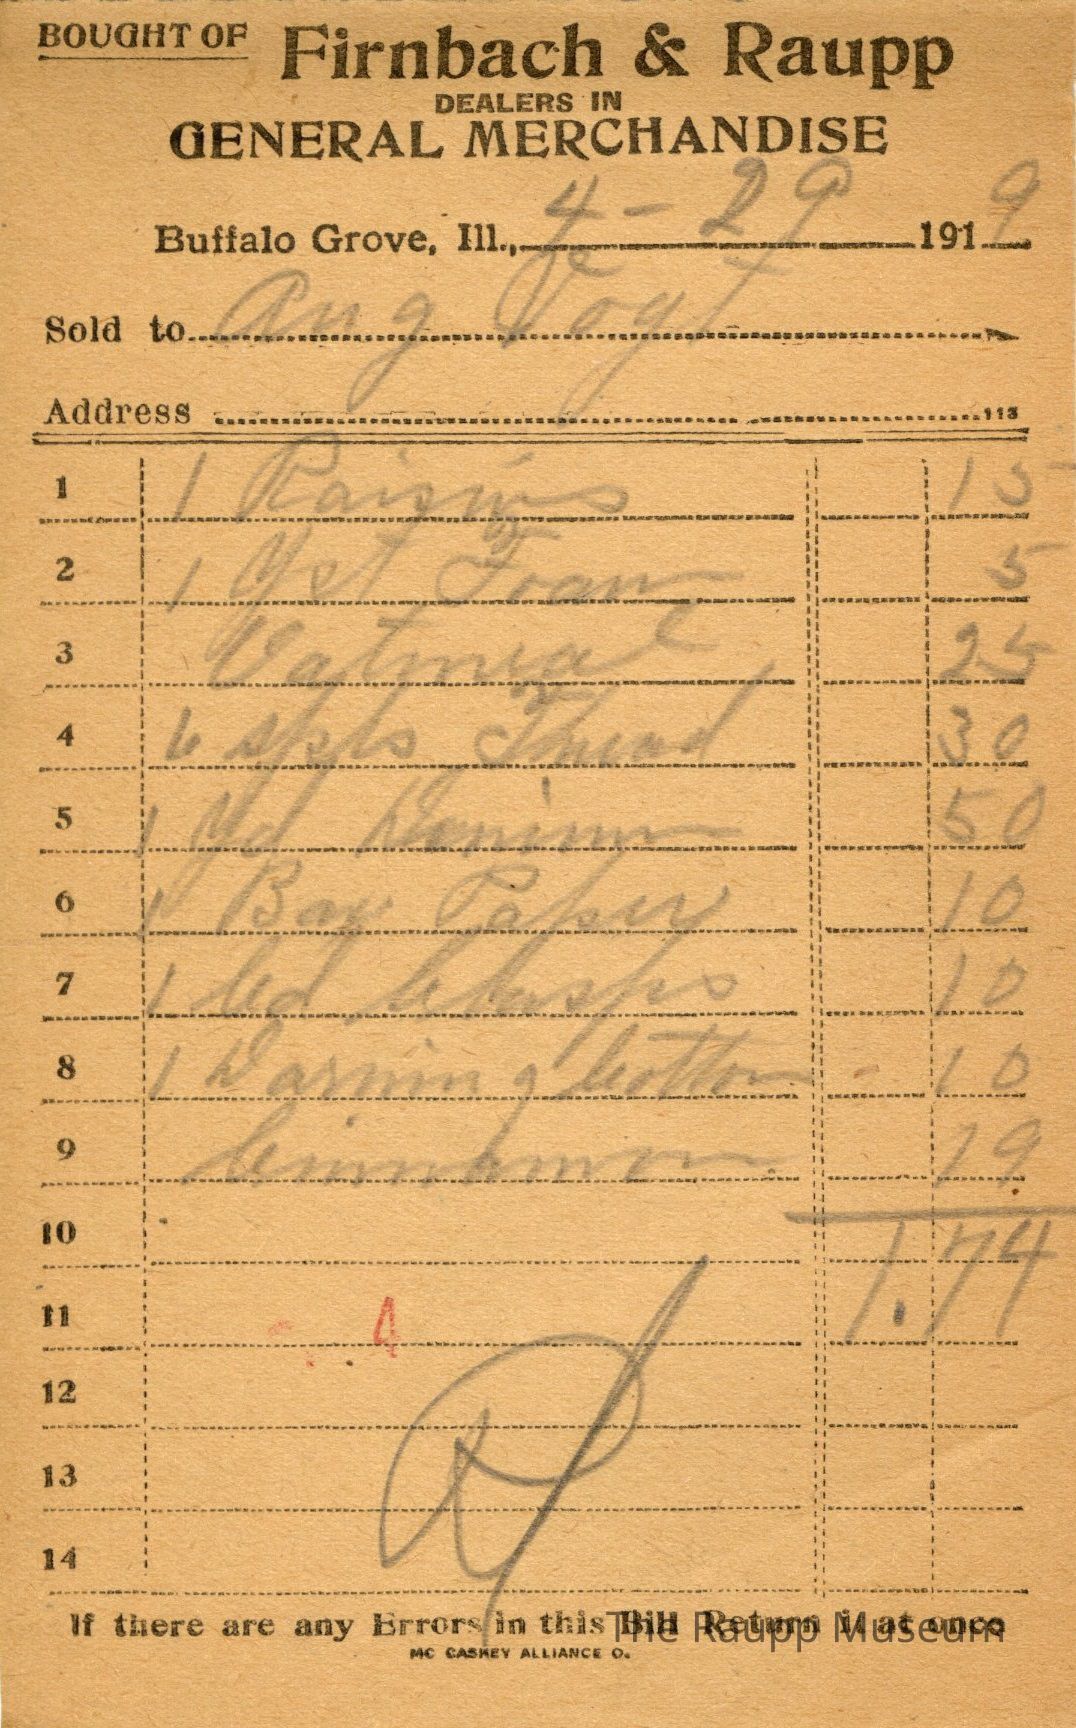 BOUGHT OF Firnbach & Raupp
DEALERS IN
GENERAL MERCHANDISE
Buffalo Grove, Ill., 4-29 1919
Sold to Aug Vogt
Address 113
1 1 Raisins 15
2 1 Yst Foam 5
3 Oatmeal 25
4 6 spls Thread 30
5 1 Yd Denim 50
6 1 Box Paper 10
7 1 Cd Clasps 10
8 1 Darning Cotton 10
9 Cinnamon 19
10 1.74
11
12
13
14
If there are any Errors in this Bill Return it at once
The Raupp Museum
MC CASKEY ALLIANCE O.